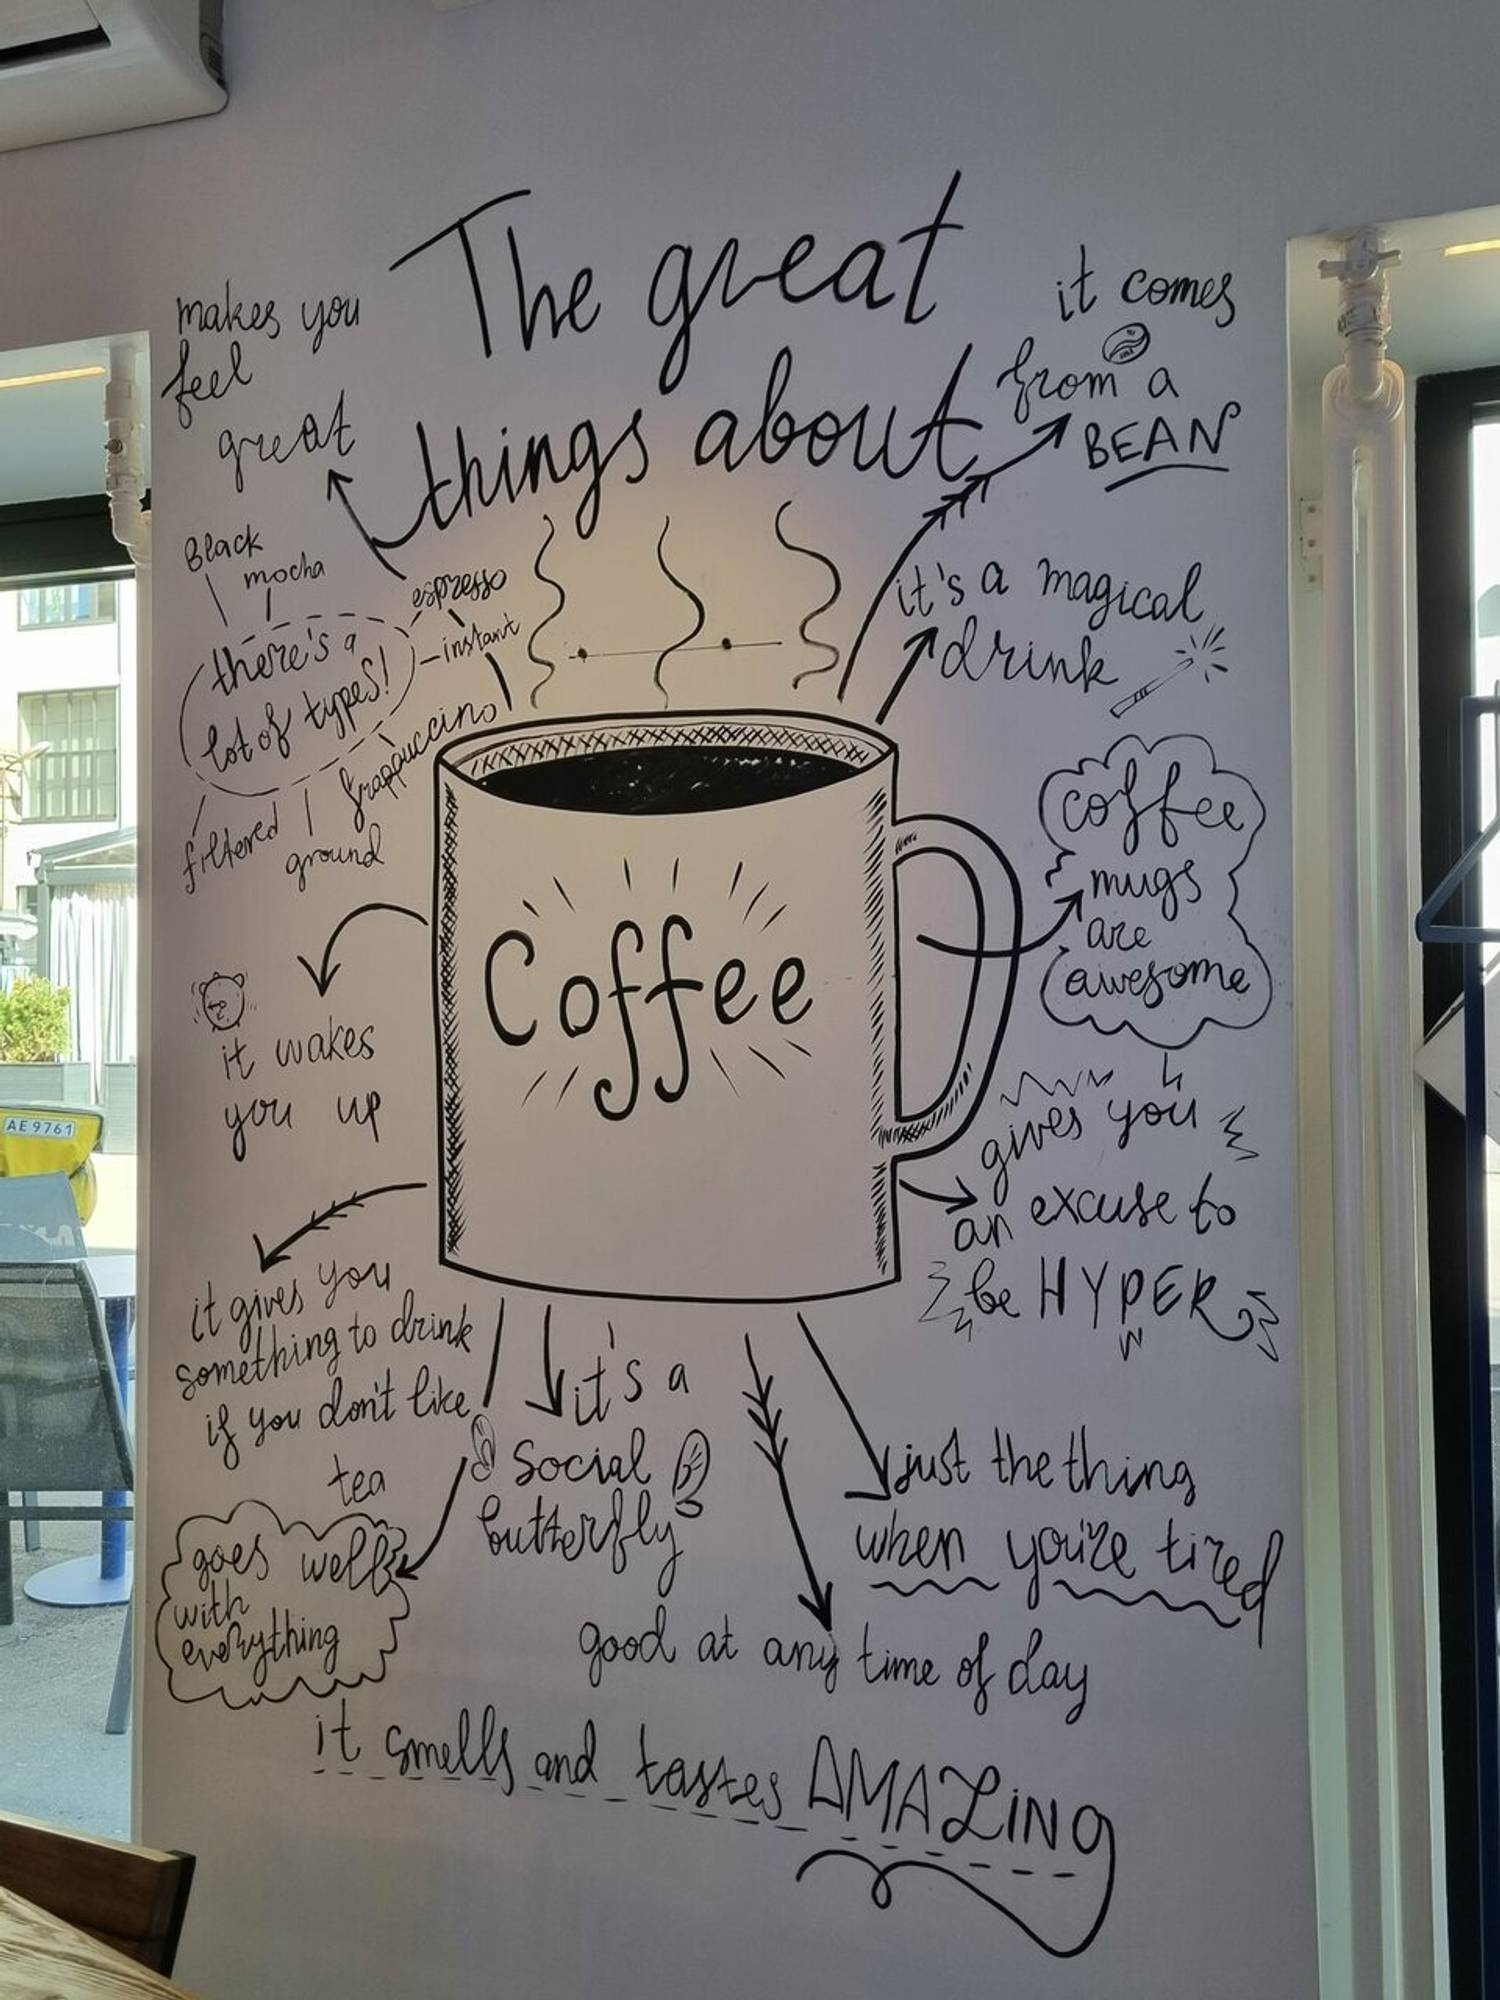 The great
things about
makes you
feel
great
it comes
from a
BEAN
Black
mocha
espresso
instant
there's a
lot of types!
frappuccino
filtered
ground
it's a magical
drink
coffee
mugs
are
awesome
Coffee
it wakes
you up
gives you
an excuse to
be HYPER
it gives you
something to drink
if you don't like
tea
it's a
social
butterfly
just the thing
when you're tired
goes well
with
everything
good at any time of day
it smells and tastes AMAZING
AE 9761